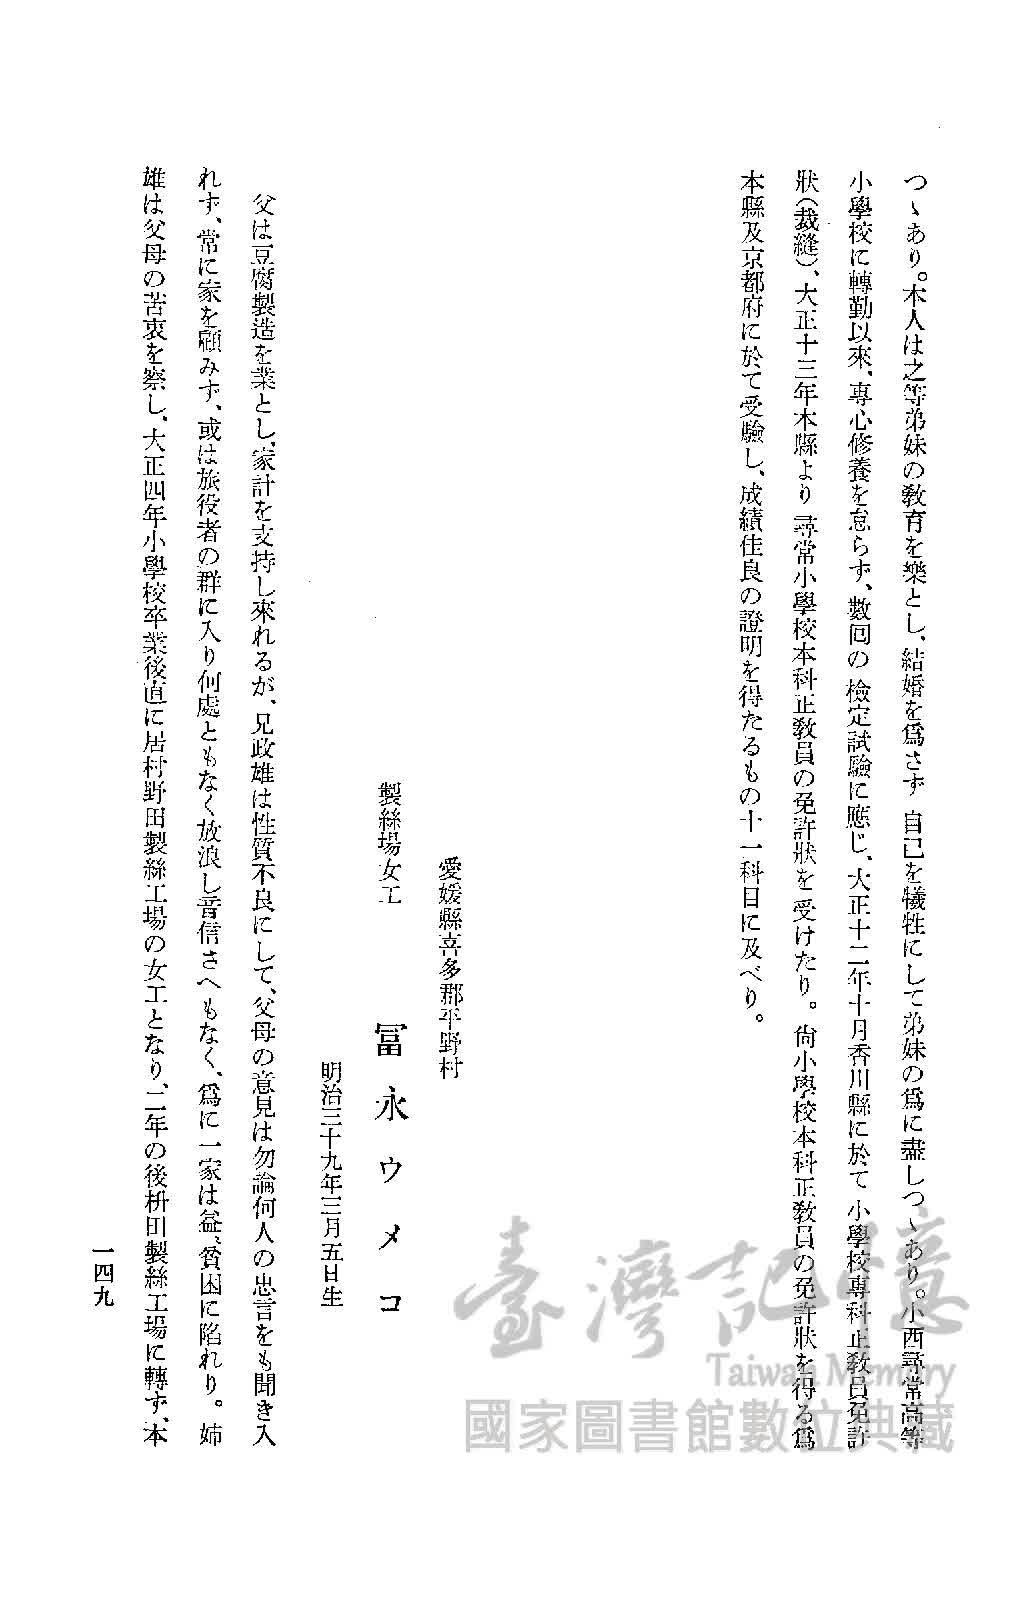 つゝあり。本人は之等弟妹の敎育を樂とし、結婚を爲さず自己を犧牲にして弟妹の爲に盡しつゝあり。小西尋常高等
小學校に轉勤以來、專心修養を怠らず、數回の檢定試驗に應じ、大正十二年十月香川縣に於て小學校專科正敎員免許
狀(裁縫)、大正十三年本縣より尋常小學校本科正敎員の免許狀を受けたり。尙小學校本科正敎員の免許狀を得る爲
本縣及京都府に於て受驗し、成績佳良の證明を得たるもの十一科目に及べり。
愛媛縣喜多郡平野村
製絲場女工 冨永ウメコ
明治三十九年三月五日生
父は豆腐製造を業とし、家計を支持し來れるが、兄政雄は性質不良にして、父母の意見は勿論何人の忠言をも聞き入
れず、常に家を顧みず、或は旅役者の群に入り何處ともなく放浪し音信さへもなく、爲に一家は益〻貧困に陷れり。姉
雄は父母の苦衷を察し、大正四年小學校卒業後直に居村野田製絲工場の女工となり、二年の後枡田製絲工場に轉ず、本
一四九
臺灣記憶
Taiwan Memory
國家圖書館數位典藏